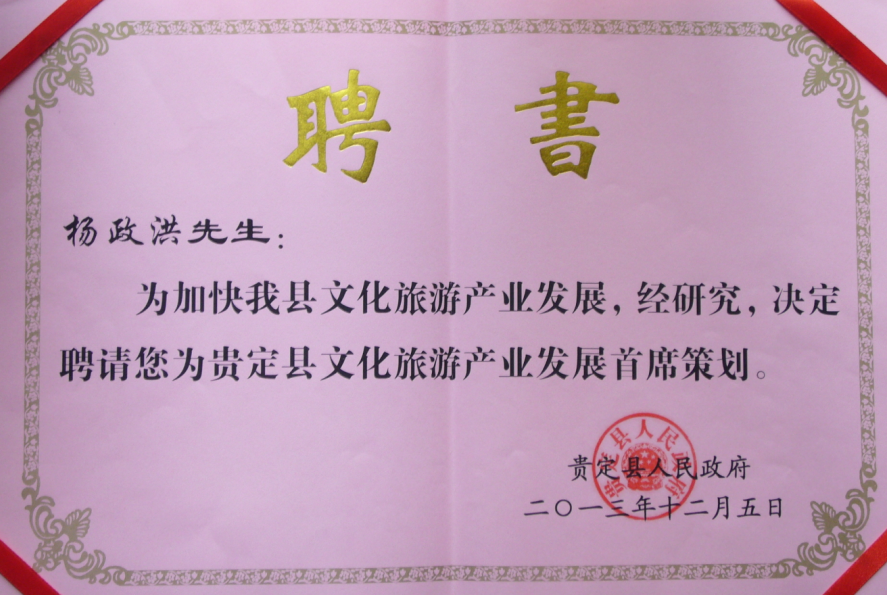 聘书
杨政洪先生：
为加快我县文化旅游产业发展，经研究，决定
聘请您为贵定县文化旅游产业发展首席策划。
贵定县人民政府
二〇一三年十二月五日
贵定县人民政府